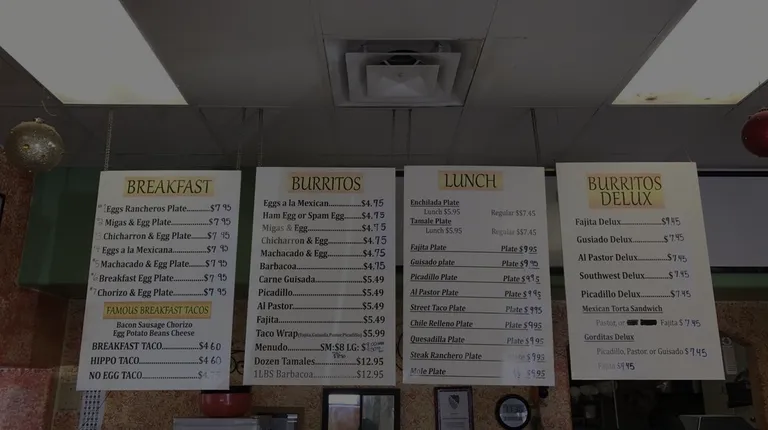 BREAKFAST
Eggs Rancheros Plate......$7.95
Migas & Egg Plate......$7.95
Chicharron & Egg Plate......$7.95
Eggs a la Mexicana......$7.95
Machacado & Egg Plate......$7.95
Breakfast Egg Plate......$7.95
Chorizo & Egg Plate......$7.95
FAMOUS BREAKFAST TACOS
Bacon Sausage Chorizo
Egg Potato Beans Cheese
BREAKFAST TACO......$4.60
HIPPO TACO......$4.60
NO EGG TACO......
BURRITOS
Eggs a la Mexican......$4.75
Ham Egg or Spam Egg......$4.75
Migas & Egg......$4.75
Chicharron & Egg......$4.75
Machacado & Egg......$4.75
Barbacoa......$4.75
Carne Guisada......$5.49
Picadillo......$5.49
Al Pastor......$5.49
Fajita......$5.49
Taco Wrap(Fajita,Guisada,Pastor,Picadillo)$5.99
Menudo......SM:$8 LG:
Dozen Tamales......$12.95
1LBS Barbacoa......$12.95
LUNCH
Enchilada Plate
Lunch $5.95 Regular $$7.45
Tamale Plate
Lunch $5.95 Regular $$7.45
Fajita Plate Plate $9.95
Guisado plate Plate $9.95
Picadillo Plate Plate $9.95
Al Pastor Plate Plate $9.95
Street Taco Plate Plate $9.95
Chile Relleno Plate Plate $9.95
Quesadilla Plate Plate $9.95
Steak Ranchero Plate $9.95
Mole Plate $9.95
BURRITOS
DELUX
Fajita Delux......$9.45
Gusiado Delux......$7.45
Al Pastor Delux......$7.45
Southwest Delux......$7.45
Picadillo Delux......$7.45
Mexican Torta Sandwich
Pastor, or Fajita $7.45
Gorditas Delux
Picadillo, Pastor, or Guisado $7.45
Fajita $9.45